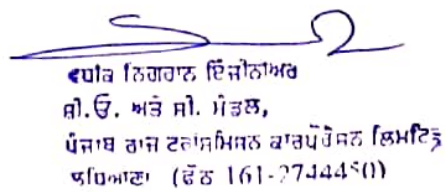 ਵਧੀਕ ਨਿਗਰਾਨ ਇੰਜੀਨੀਅਰ
ਸੀ.ਓ. ਅਤੇ ਸੀ. ਮੰਡਲ,
ਪੰਜਾਬ ਰਾਜ ਟਰਾਂਸਮਿਸਨ ਕਾਰਪੋਰੇਸਨ ਲਿਮਟਿਡ
ਲੁਧਿਆਣਾ (ਫੋਨ 161-2744450)